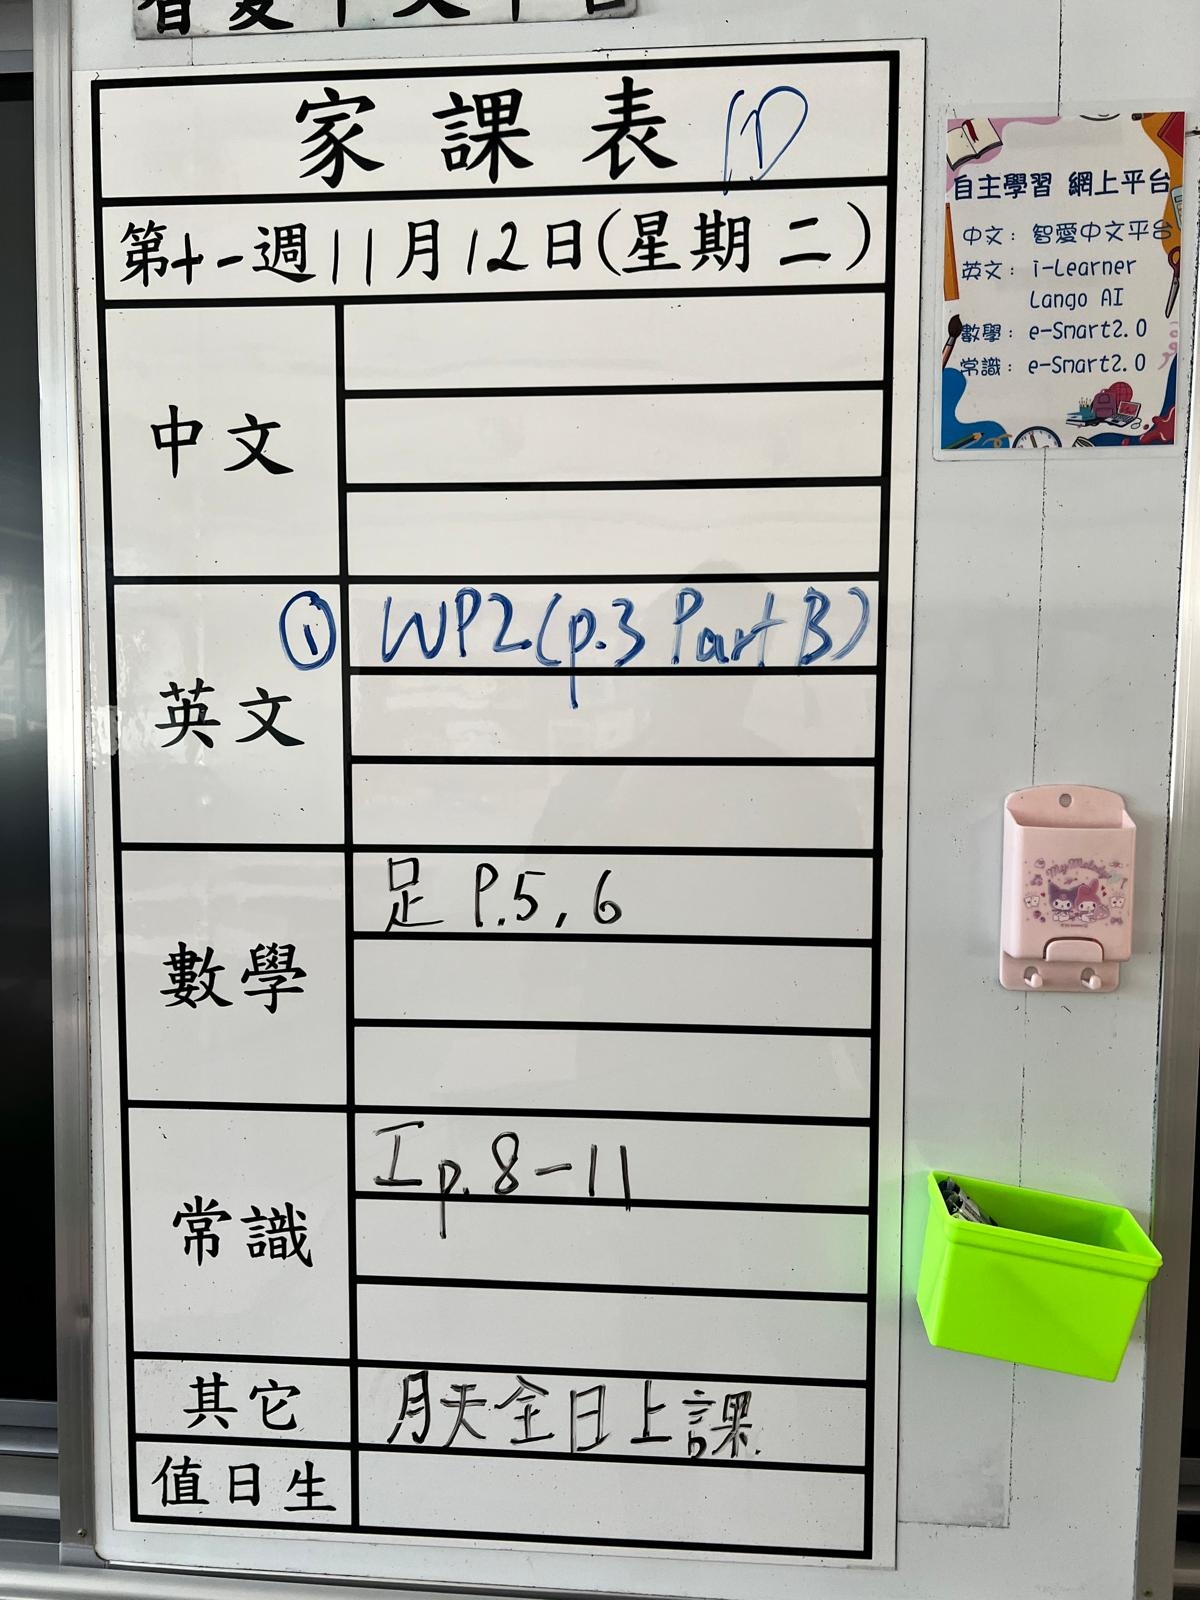 智愛中文平台
家課表 1D
第十一週11月12日(星期二)
中文
英文
① WP2(p.3 Part B)
數學
足 P.5, 6
常識
工 p.8-11
其它
月天全日上課
值日生
自主學習 網上平台
中文：智愛中文平台
英文：i-Learner
Lango AI
數學：e-Smart2.0
常識：e-Smart2.0
My Melody